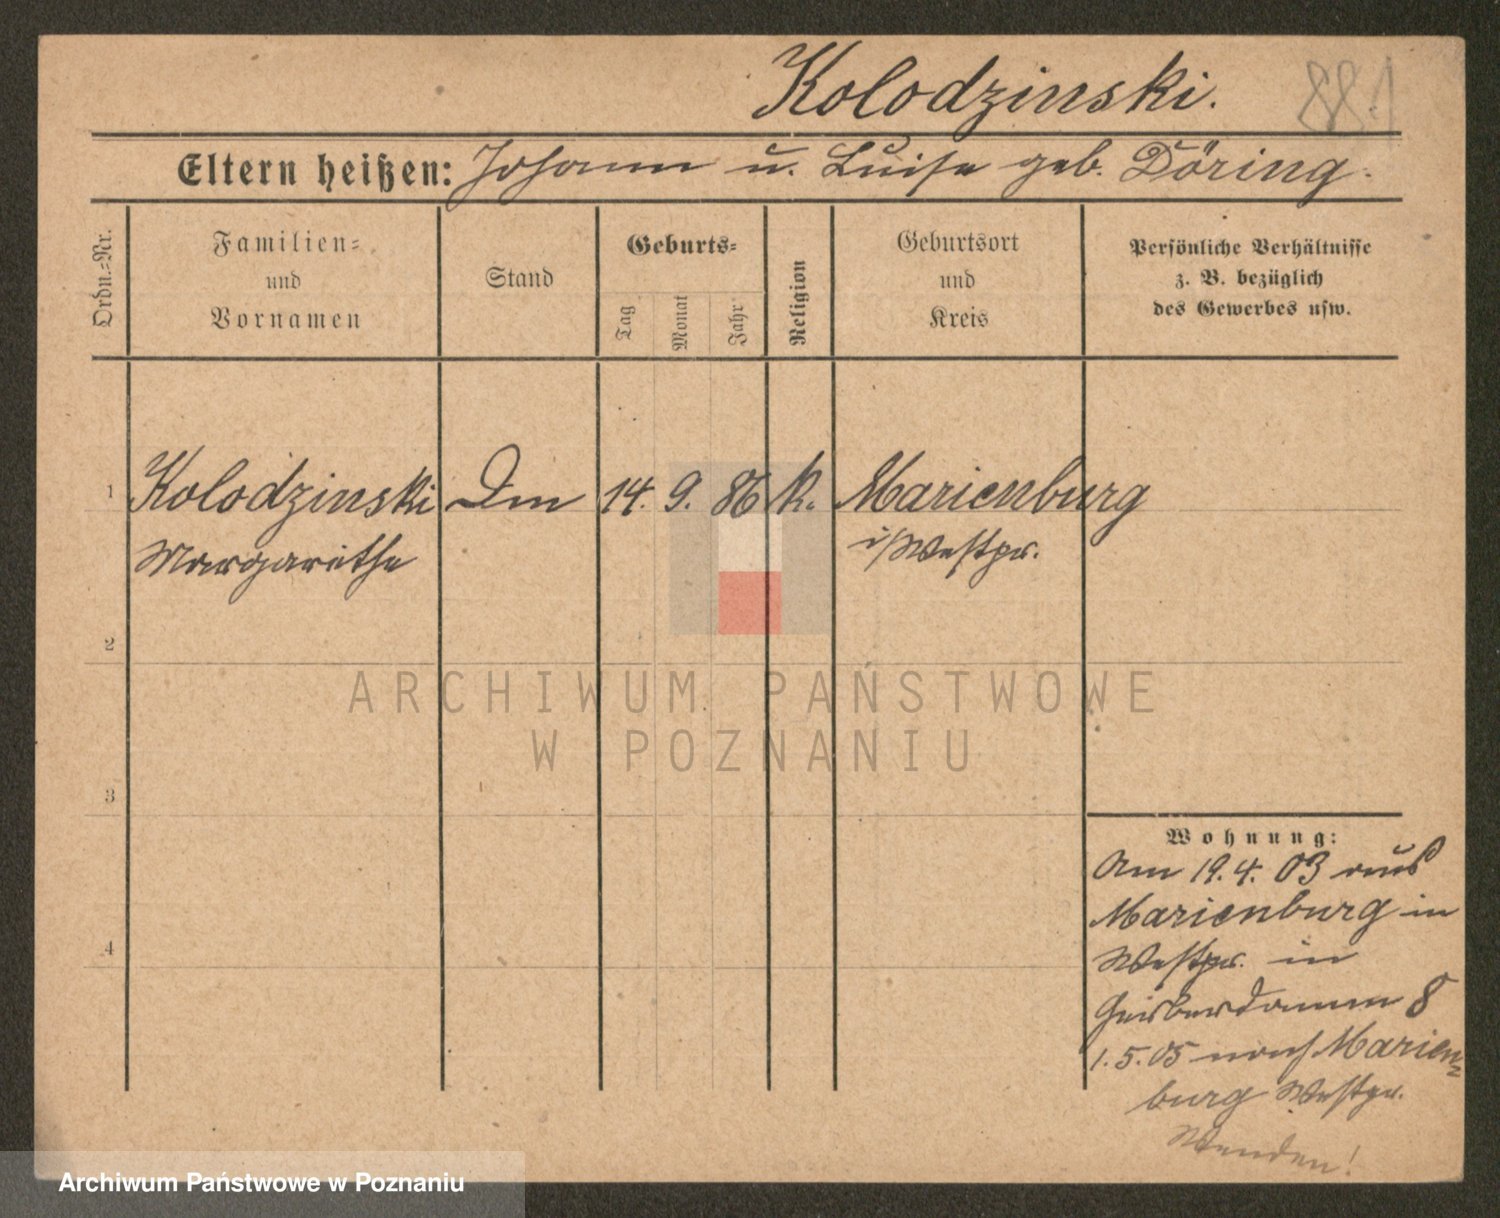 Kolodzinski.
881
Eltern heißen: Johann u. Luise geb. Döring.
Ordn.=Nr.
Familien=
und
Vornamen
Stand
Geburts=
Tag
Monat
Jahr
Religion
Geburtsort
und
Kreis
Persönliche Verhältnisse
z. B. bezüglich
des Gewerbes usw.
1 Kolodzinski 14. 9. 86 k. Marienburg
Margarethe i/Westpr.
2
ARCHIWUM PAŃSTWOWE
W POZNANIU
3
Wohnung:
Am 19.4.03 aus
Marienburg in
Westpr. in
4
8
1.5.05 nach Marien=
burg Westpr.
Wenden!
Archiwum Państwowe w Poznaniu